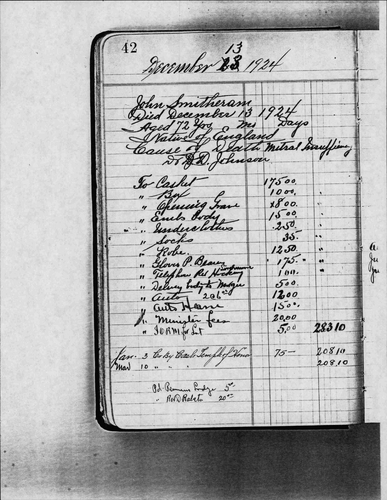 42
13
December 13, 1924
John Smitheram
Died December 13 1924
Aged 72 Yrs Ms Days
Native of England
Cause of Death Mitral Insuffincy
Dr Johnson
To Casket 175.00
" Box 10.00
" Opening Grave 18.00
" Emb Body 15.00
" Underclothes 2.50
" Socks .35
" Robe 12.50
" Gloves P. Bearers 1.75
" Telephone 1.00
" Delivery Body to 5.00
" Auto 12.00
" Auto Hearse 15.00
" Minister fees 20.00
" I.O.R.M for Lot 5.00 283.10
Jan. 3 Cr By Cash Temple of Honor 75— 208.10
Mar 10 " " " 208.10
Pd. Lodge 5.00
" 20.00